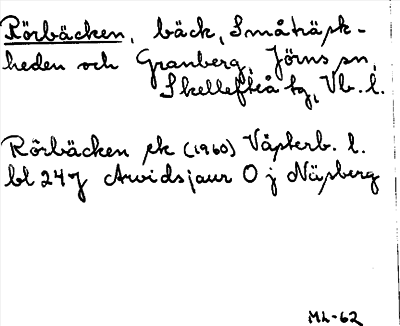 Rörbäcken, bäck, Småträsk-
heden och Granberg, Jörns sn,
Skellefteå tg, Vb. l.
Rörbäcken ek (1960) Västerb. l.
bl 24 J Arvidsjaur O j Näsberg
ML-62